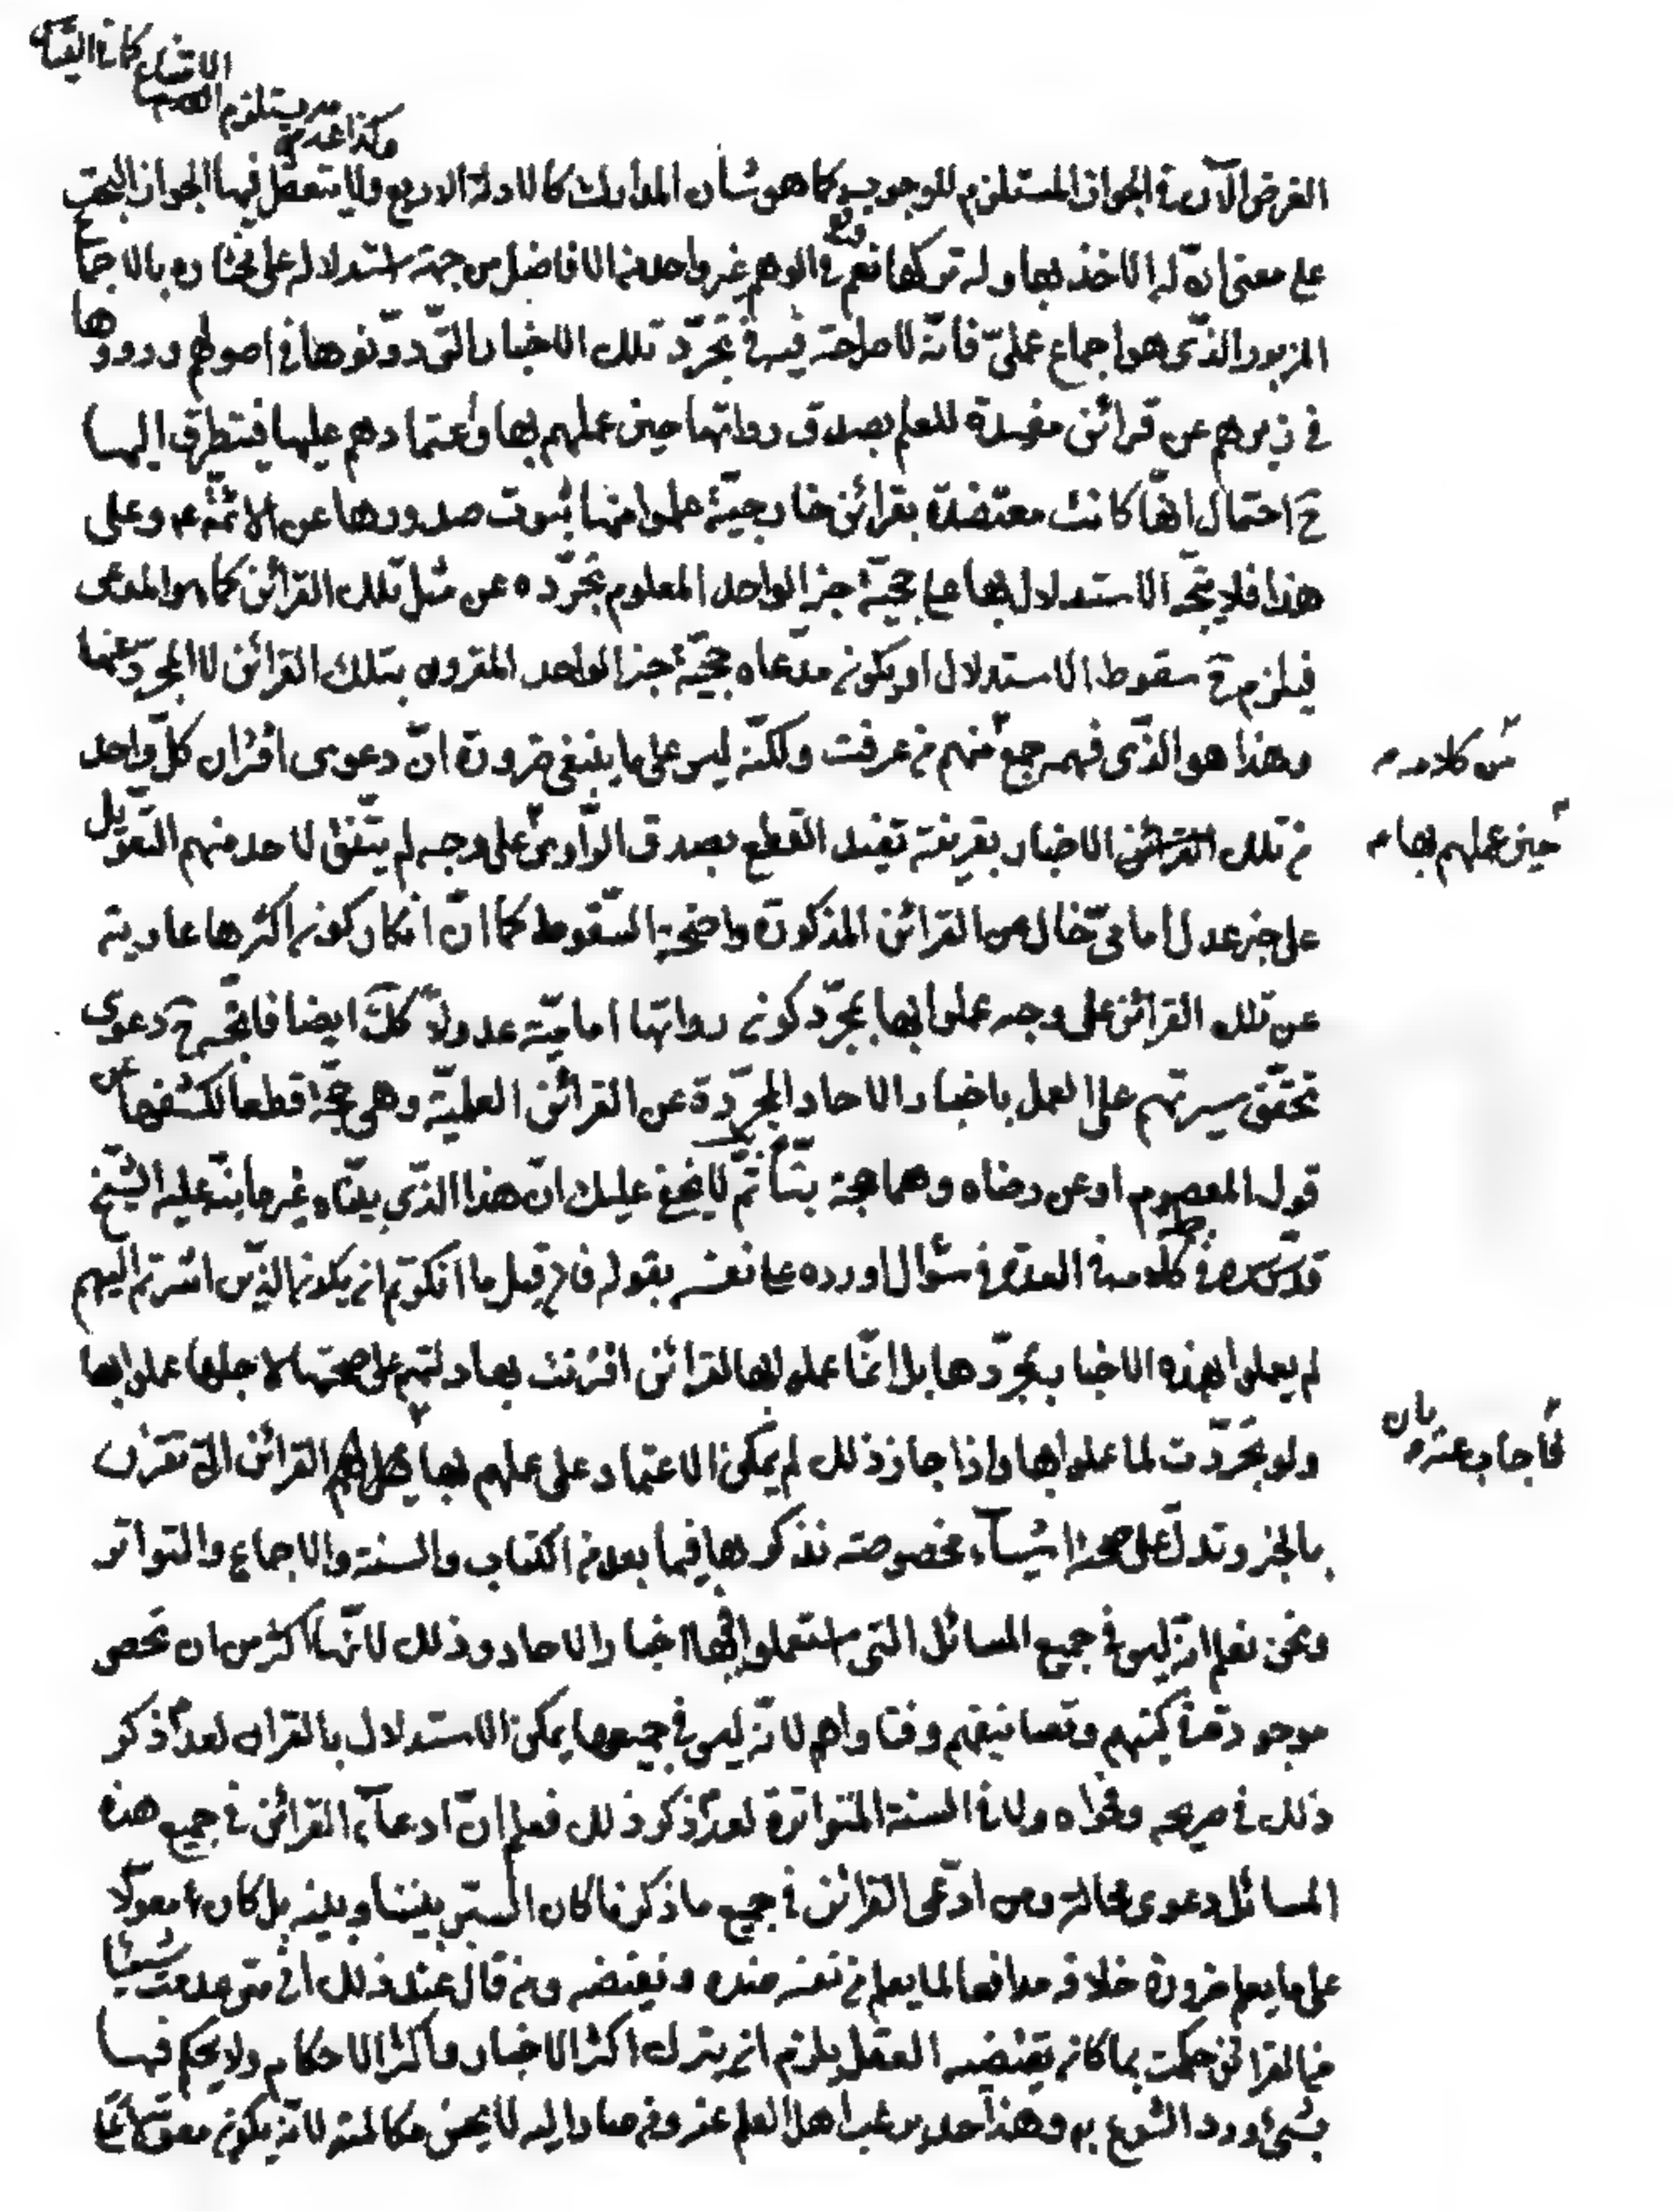 وكذا عدمه يستلزم العدم
الامتناع كما في القياس
الفرض الآن في الجواز المستلزم للوجوب كما هو شأن المدارك كالادلة الاربع ولا يتعقل فيها الجواز البحت
على معنى انه له الاخذ بها وله تركها نعم وقع في الوهم غير واحد من الافاضل من جهة استدلاله على مختاره بالاجماع
المزبور الذي هو اجماع عملي فانه لا صراحة فيه في تجرد تلك الاخبار التي دونوها في اصولهم ورووها
في زبرهم عن قرائن مفيدة للعلم بصدق رواتها حين عملهم بها واعتمادهم عليها فيتطرق اليها
ح احتمال انها كانت معتضدة بقرائن خارجية علموا منها ثبوت صدورها عن الائمة ع وعلى
هذا فلا يتجه الاستدلال بها على حجية خبر الواحد المعلوم تجرده عن مثل تلك القرائن كما هو المدعى
فيلزم ح سقوط الاستدلال او يكون مدعاه حجية خبر الواحد المقرون بتلك القرائن لا المجرد عنها
وهذا هو الذي فهمه جمع منهم من عرفت ولكنه ليس على ما ينبغي ضرورة ان دعوى اقتران كل واحد
من كلامه م
من تلك الاخبار بقرينة تفيد القطع بصدق الراوي على وجه لم يتفق لاحد منهم التعويل
حين عملهم بها م
على خبر عدل امامي خال من القرائن المذكورة واضحة السقوط كما ان انكار كون اكثرها عارية
عن تلك القرائن على وجه عملوا بها بمجرد كون رواتها امامية عدولا كك ايضا فاتجه ح دعوى
تحقق سيرتهم على العمل باخبار الاحاد المجردة عن القرائن العلمية وهي حجة قطعا لكشفها عن
قول المعصوم او عن رضاه وهما حجة بتا ثم لا يخفى عليك ان هذا الذي بيناه غير ما نبه عليه الشيخ
قدس سره في كلامه في العدة في سؤال اورده على نفسه بقوله فان قيل ما انكرتم ان يكون الذين اشرتم اليهم
لم يعملوا بهذه الاخبار بمجردها بل انما عملوا بها لقرائن اقترنت بها دلتهم على صحتها لاجلها عملوا بها
ولو تجردت لما عملوا بها واذا جاز ذلك لم يمكن الاعتماد على عملهم بها القرائن التي تقترن
فاجاب عنه م بان
بالخبر وتدل على صحته اشياء مخصوصة نذكرها فيما بعد من الكتاب والسنة والاجماع والتواتر
ونحن نعلم انه ليس في جميع المسائل التي استعملوا فيها اخبار الاحاد وذلك لانها اكثر من ان تحصى
موجودة في كتبهم وتصانيفهم وفتاواهم لانه ليس في جميعها يمكن الاستدلال بالقران لعدم ذكر
ذلك في صريحه وفحواه ولا في السنة المتواترة لعدم ذكر ذلك فعلم ان ادعاء القرائن في جميع هذه
المسائل دعوى محالة ومن ادعى القرائن في جميع ما ذكرنا كان السبر بيننا وبينه بل كان معولا
على ما يعلم ضرورة خلافه مدافعا لما يعلم من نفسه ضده ونقيضه ومن قال عند ذلك اني متى عدمت شيئا
من القرائن حكمت بما كان يقتضيه العقل يلزم ان يترك اكثر الاخبار واكثر الاحكام ولا يحكم فيها
بشئ ورد الشرع به وهذا حد يرغب اهل العلم عنه ومن صار اليه لا يحسن مكالمته لانه يكون معولا على